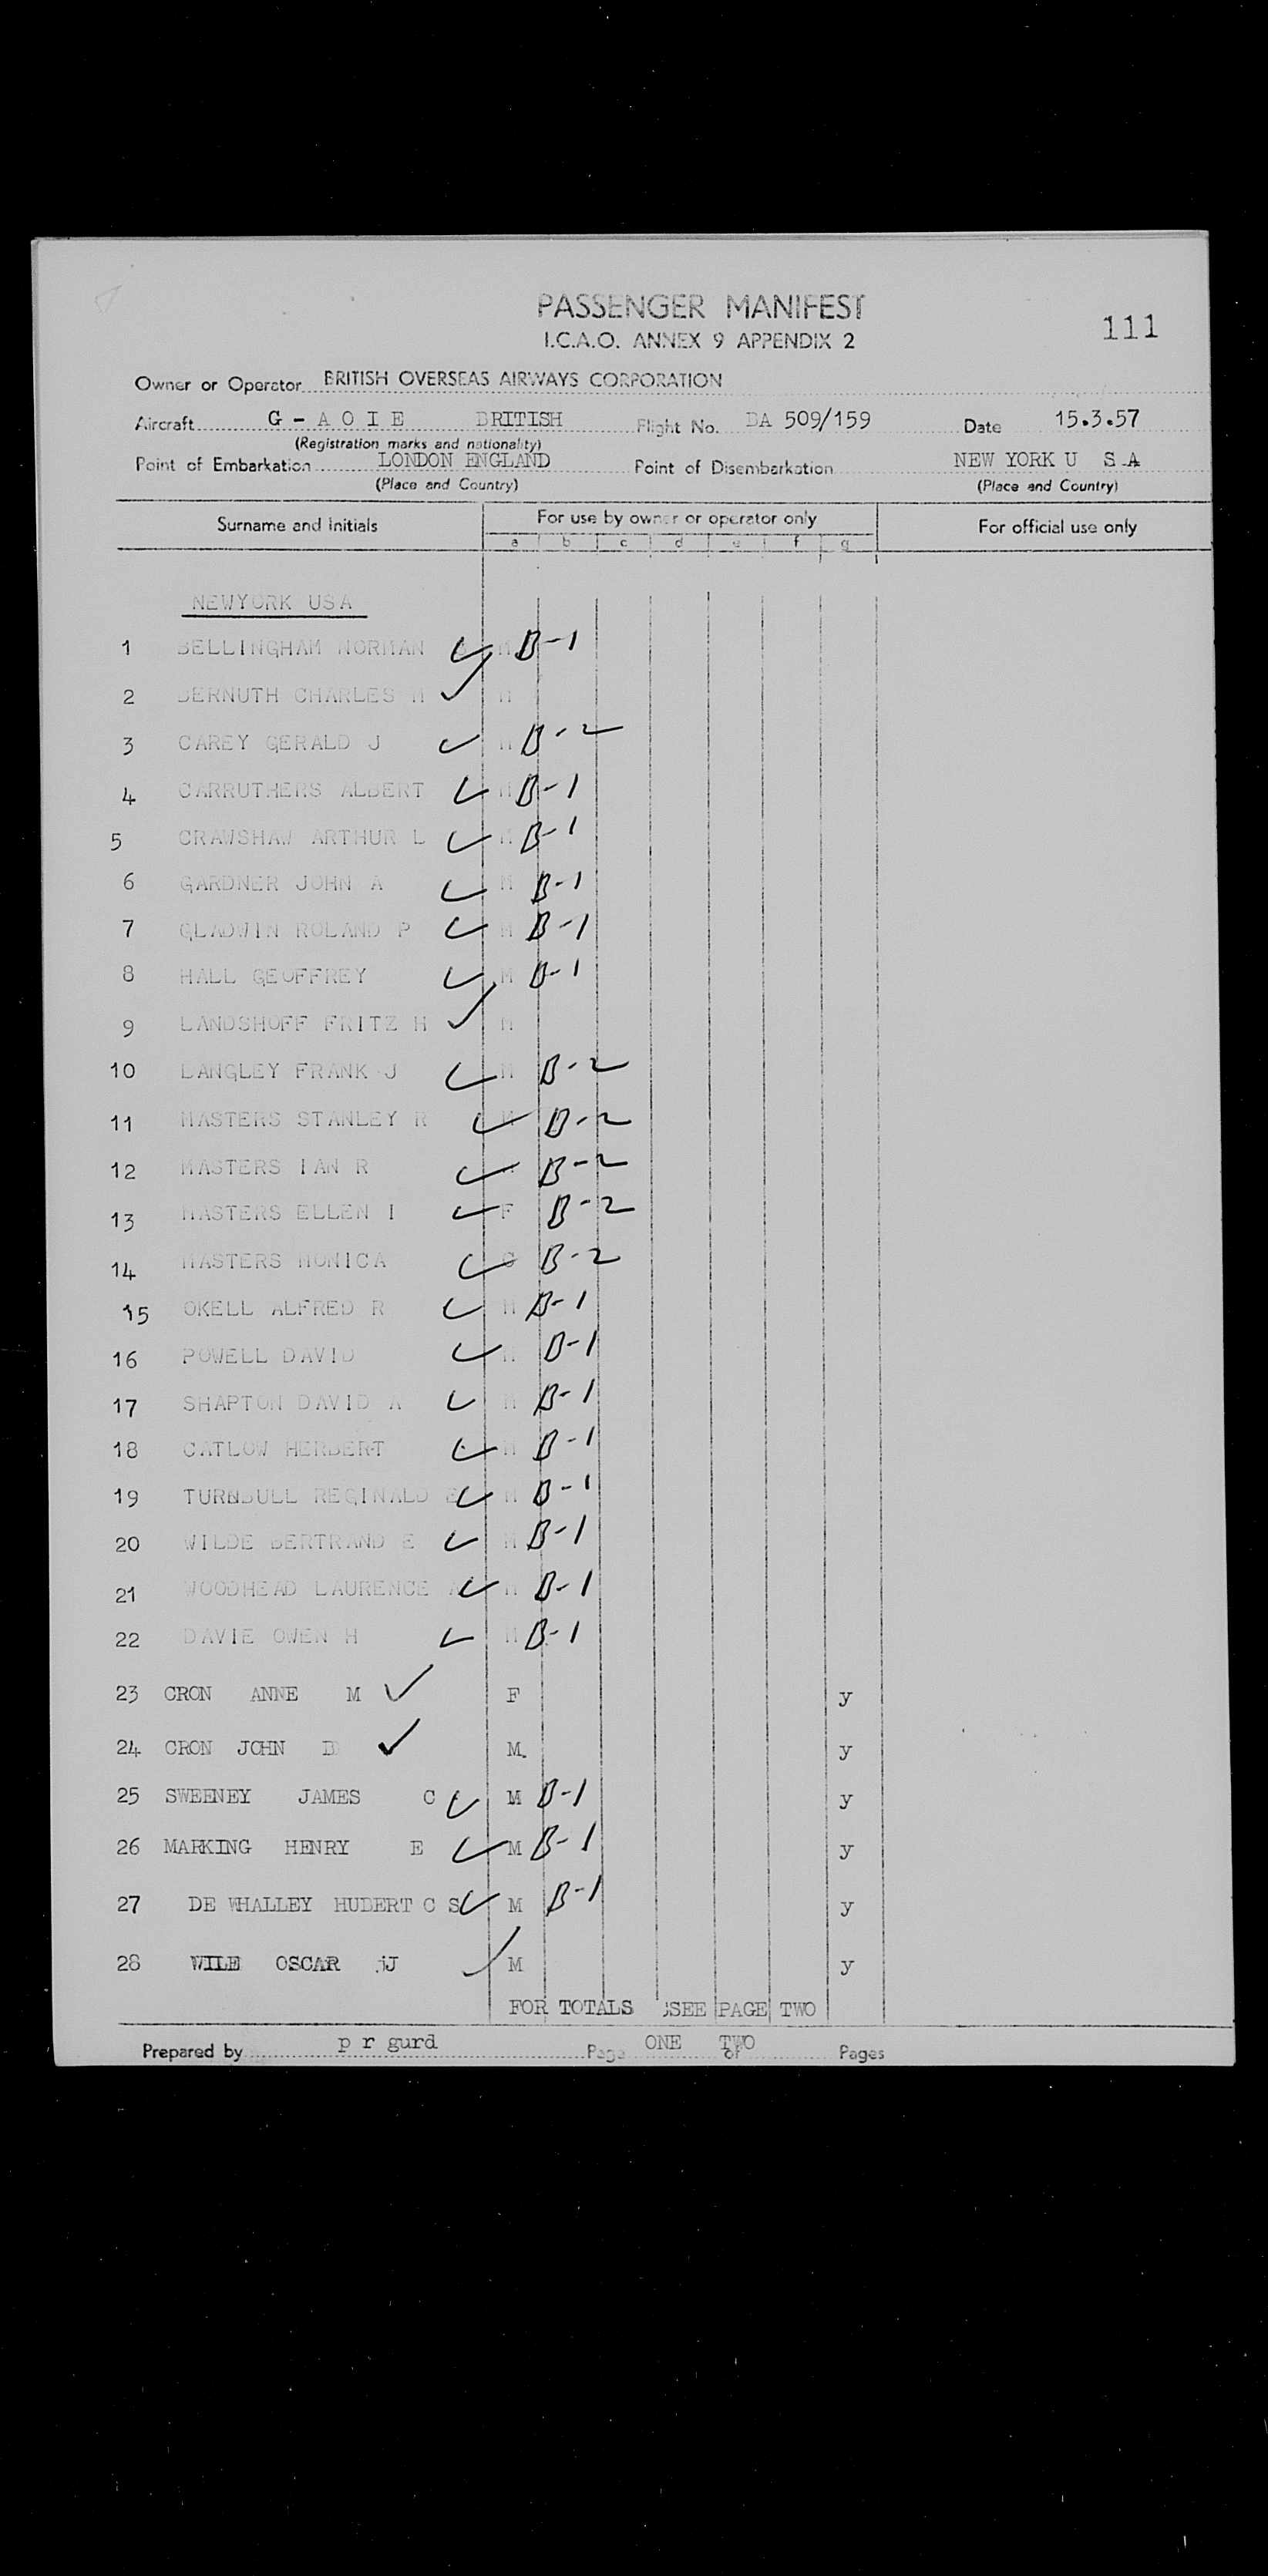 PASSENGER MANIFEST
I.C.A.O. ANNEX 9 APPENDIX 2
111
Owner or Operator BRITISH OVERSEAS AIRWAYS CORPORATION
Aircraft G - A O I E BRITISH Flight No. BA 509/159 Date 15.3.57
(Registration marks and nationality)
Point of Embarkation LONDON ENGLAND Point of Disembarkation NEW YORK U S A
(Place and Country) (Place and Country)
Surname and Initials For use by owner or operator only For official use only
a b c d e f g
NEWYORK USA
1 BELLINGHAM NORMAN M B-1
2 BERNUTH CHARLES M M
3 CAREY GERALD J M B-2
4 CARRUTHERS ALBERT M B-1
5 CRAWSHAW ARTHUR L M B-1
6 GARDNER JOHN A M B-1
7 GLADWIN ROLAND P M B-1
8 HALL GEOFFREY M B-1
9 LANDSHOFF FRITZ H M
10 LANGLEY FRANK J M B-2
11 MASTERS STANLEY R M B-2
12 MASTERS IAN R B-2
13 MASTERS ELLEN I F B-2
14 MASTERS MONICA C B-2
15 OKELL ALFRED R M B-1
16 POWELL DAVID M B-1
17 SHAPTON DAVID A M B-1
18 CATLOW HERBERT M B-1
19 TURNBULL REGINALD E M B-1
20 WILDE BERTRAND E M B-1
21 WOODHEAD LAURENCE M B-1
22 DAVIE OWEN H M B-1
23 CRON ANNE M F y
24 CRON JOHN B M. y
25 SWEENEY JAMES C M B-1 y
26 MARKING HENRY E M B-1 y
27 DE WHALLEY HUBERT C S M B-1 y
28 WILE OSCAR J M y
FOR TOTALS SEE PAGE TWO
Prepared by p r gurd Page ONE of TWO Pages